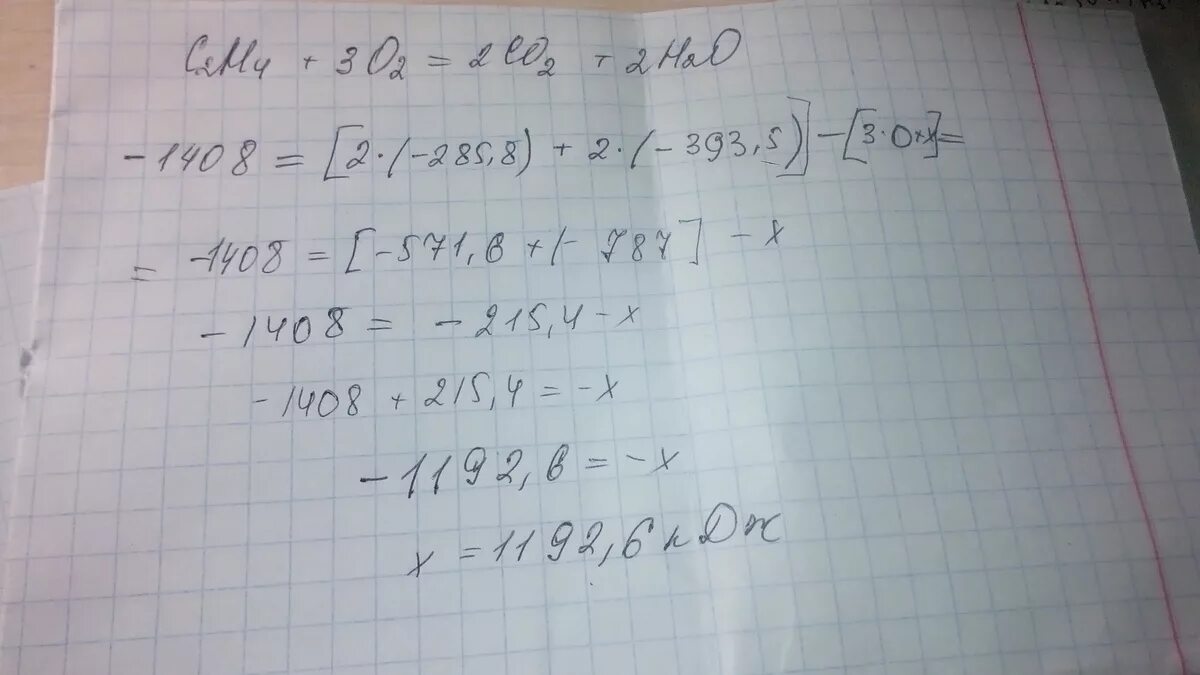 C2H4 + 3O2 = 2CO2 + 2H2O
-1408 = [2·(-285,8) + 2·(-393,5)] - [3·0+x] =
= -1408 = [-571,6 + (- 787] - x
-1408 = - 215,4 - x
-1408 + 215,4 = -x
-1192,6 = -x
x = 1192,6 кДж